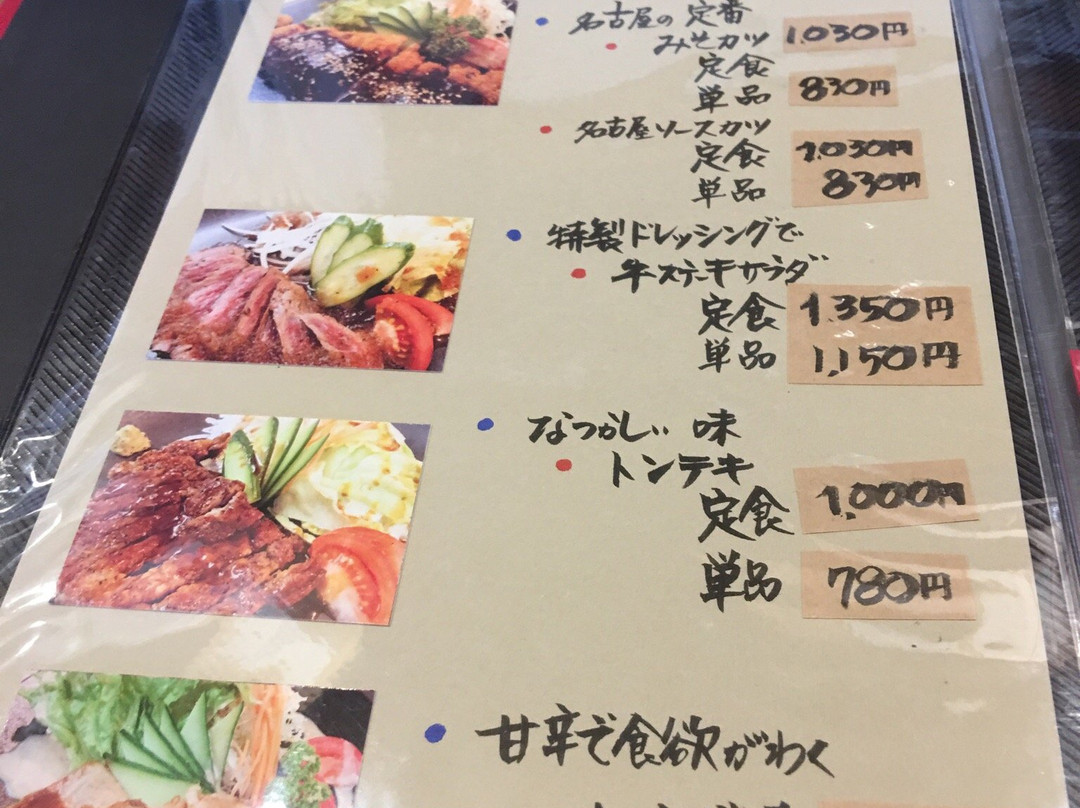 名古屋の定番
みそカツ
定食 1,030円
単品 830円
名古屋ソースカツ
定食 1,030円
単品 830円
特製ドレッシングで
牛ステーキサラダ
定食 1,350円
単品 1,150円
なつかしい味
トンテキ
定食 1,000円
単品 780円
甘辛で食欲がわく